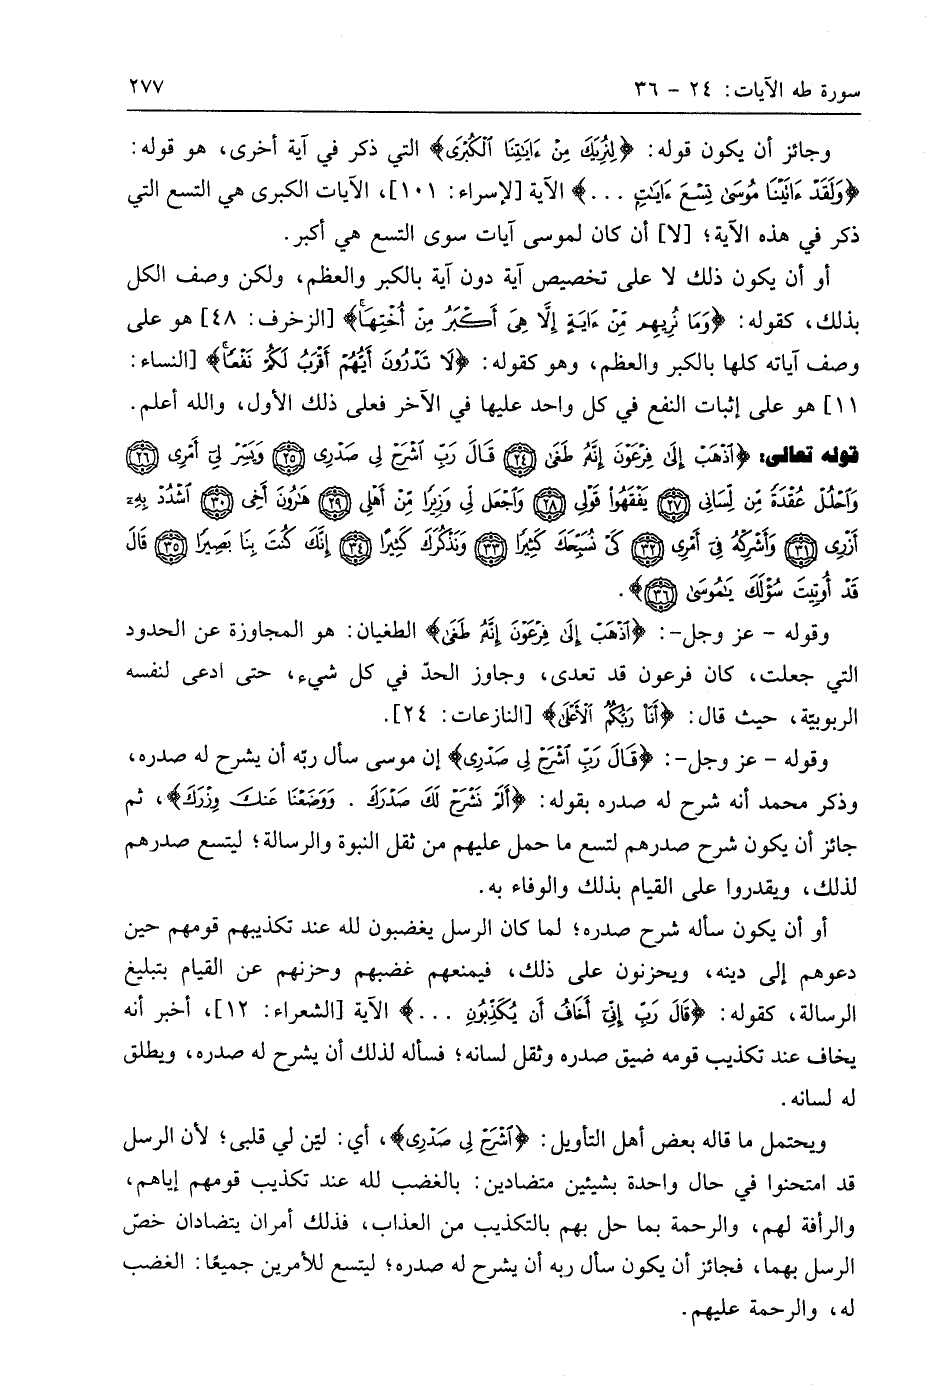 سورة طه الآيات: ٢٤ - ٣٦ ٢٧٧
وجائز أن يكون قوله: ﴿لِنُرِيَكَ مِنْ ءَايَٰتِنَا ٱلْكُبْرَى﴾ التي ذكر في آية أخرى، هو قوله:
﴿وَلَقَدْ ءَاتَيْنَا مُوسَىٰ تِسْعَ ءَايَٰتٍ ...﴾ الآية [لإسراء: ١٠١]، الآيات الكبرى هي التسع التي
ذكر في هذه الآية؛ [لا] أن كان لموسى آيات سوى التسع هي أكبر.
أو أن يكون ذلك لا على تخصيص آية دون آية بالكبر والعظم، ولكن وصف الكل
بذلك، كقوله: ﴿وَمَا نُرِيهِم مِّنْ ءَايَةٍ إِلَّا هِىَ أَكْبَرُ مِنْ أُخْتِهَا﴾ [الزخرف: ٤٨] هو على
وصف آياته كلها بالكبر والعظم، وهو كقوله: ﴿لَا تَدْرُونَ أَيُّهُمْ أَقْرَبُ لَكُمْ نَفْعًا﴾ [النساء:
١١] هو على إثبات النفع في كل واحد عليها في الآخر فعلى ذلك الأول، والله أعلم.
قوله تعالى: ﴿ٱذْهَبْ إِلَىٰ فِرْعَوْنَ إِنَّهُۥ طَغَىٰ ٢٤ قَالَ رَبِّ ٱشْرَحْ لِى صَدْرِى ٢٥ وَيَسِّرْ لِىٓ أَمْرِى ٢٦
وَٱحْلُلْ عُقْدَةً مِّن لِّسَانِى ٢٧ يَفْقَهُوا۟ قَوْلِى ٢٨ وَٱجْعَل لِّى وَزِيرًا مِّنْ أَهْلِى ٢٩ هَٰرُونَ أَخِى ٣٠ ٱشْدُدْ بِهِۦٓ
أَزْرِى ٣١ وَأَشْرِكْهُ فِىٓ أَمْرِى ٣٢ كَىْ نُسَبِّحَكَ كَثِيرًا ٣٣ وَنَذْكُرَكَ كَثِيرًا ٣٤ إِنَّكَ كُنتَ بِنَا بَصِيرًا ٣٥ قَالَ
قَدْ أُوتِيتَ سُؤْلَكَ يَٰمُوسَىٰ ٣٦﴾.
وقوله - عز وجل-: ﴿ٱذْهَبْ إِلَىٰ فِرْعَوْنَ إِنَّهُۥ طَغَىٰ﴾ الطغيان: هو المجاوزة عن الحدود
التي جعلت، كان فرعون قد تعدى، وجاوز الحدّ في كل شيء، حتى ادعى لنفسه
الربوبيّة، حيث قال: ﴿أَنَا۠ رَبُّكُمُ ٱلْأَعْلَىٰ﴾ [النازعات: ٢٤].
وقوله - عز وجل-: ﴿قَالَ رَبِّ ٱشْرَحْ لِى صَدْرِى﴾ إن موسى سأل ربّه أن يشرح له صدره،
وذكر محمد أنه شرح له صدره بقوله: ﴿أَلَمْ نَشْرَحْ لَكَ صَدْرَكَ . وَوَضَعْنَا عَنكَ وِزْرَكَ﴾، ثم
جائز أن يكون شرح صدرهم لتسع ما حمل عليهم من ثقل النبوة والرسالة؛ ليتسع صدرهم
لذلك، ويقدروا على القيام بذلك والوفاء به.
أو أن يكون سأله شرح صدره؛ لما كان الرسل يغضبون لله عند تكذيبهم قومهم حين
دعوهم إلى دينه، ويحزنون على ذلك، فيمنعهم غضبهم وحزنهم عن القيام بتبليغ
الرسالة، كقوله: ﴿قَالَ رَبِّ إِنِّىٓ أَخَافُ أَن يُكَذِّبُونِ ...﴾ الآية [الشعراء: ١٢]، أخبر أنه
يخاف عند تكذيب قومه ضيق صدره وثقل لسانه؛ فسأله لذلك أن يشرح له صدره، ويطلق
له لسانه.
ويحتمل ما قاله بعض أهل التأويل: ﴿ٱشْرَحْ لِى صَدْرِى﴾، أي: ليّن لي قلبي؛ لأن الرسل
قد امتحنوا في حال واحدة بشيئين متضادين: بالغضب لله عند تكذيب قومهم إياهم،
والرأفة لهم، والرحمة بما حل بهم بالتكذيب من العذاب، فذلك أمران يتضادان خصّ
الرسل بهما، فجائز أن يكون سأل ربه أن يشرح له صدره؛ ليتسع للأمرين جميعًا: الغضب
له، والرحمة عليهم.